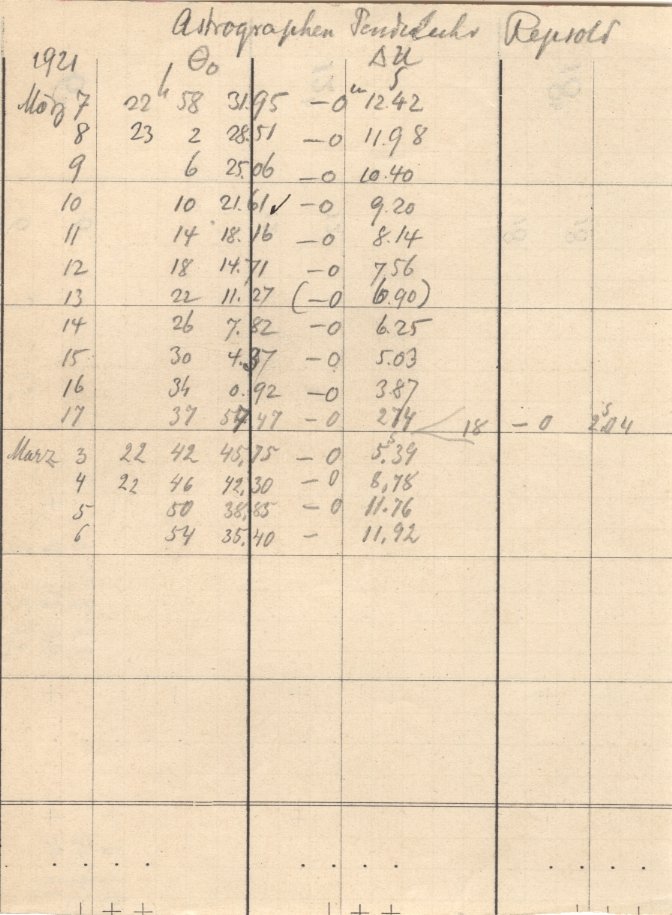 Astrographen Pendeluhr Repsold
1921 Θ₀ ΔU
h m s
März 7 22 58 31.95 -0 12.42
8 23 2 28.51 -0 11.98
9 6 25.06 -0 10.40
10 10 21.61 ✓ -0 9.20
11 14 18.16 -0 8.14
12 18 14.71 -0 7.56
13 22 11.27 (-0 6.90)
14 26 7.82 -0 6.25
15 30 4.37 -0 5.03
16 34 0.92 -0 3.87
17 37 57.47 -0 2.74 18 -0 2.04
März 3 22 42 45,75 -0 5.39
4 22 46 42,30 -0 8,78
5 50 38,85 -0 11.76
6 54 35.40 - 11.92